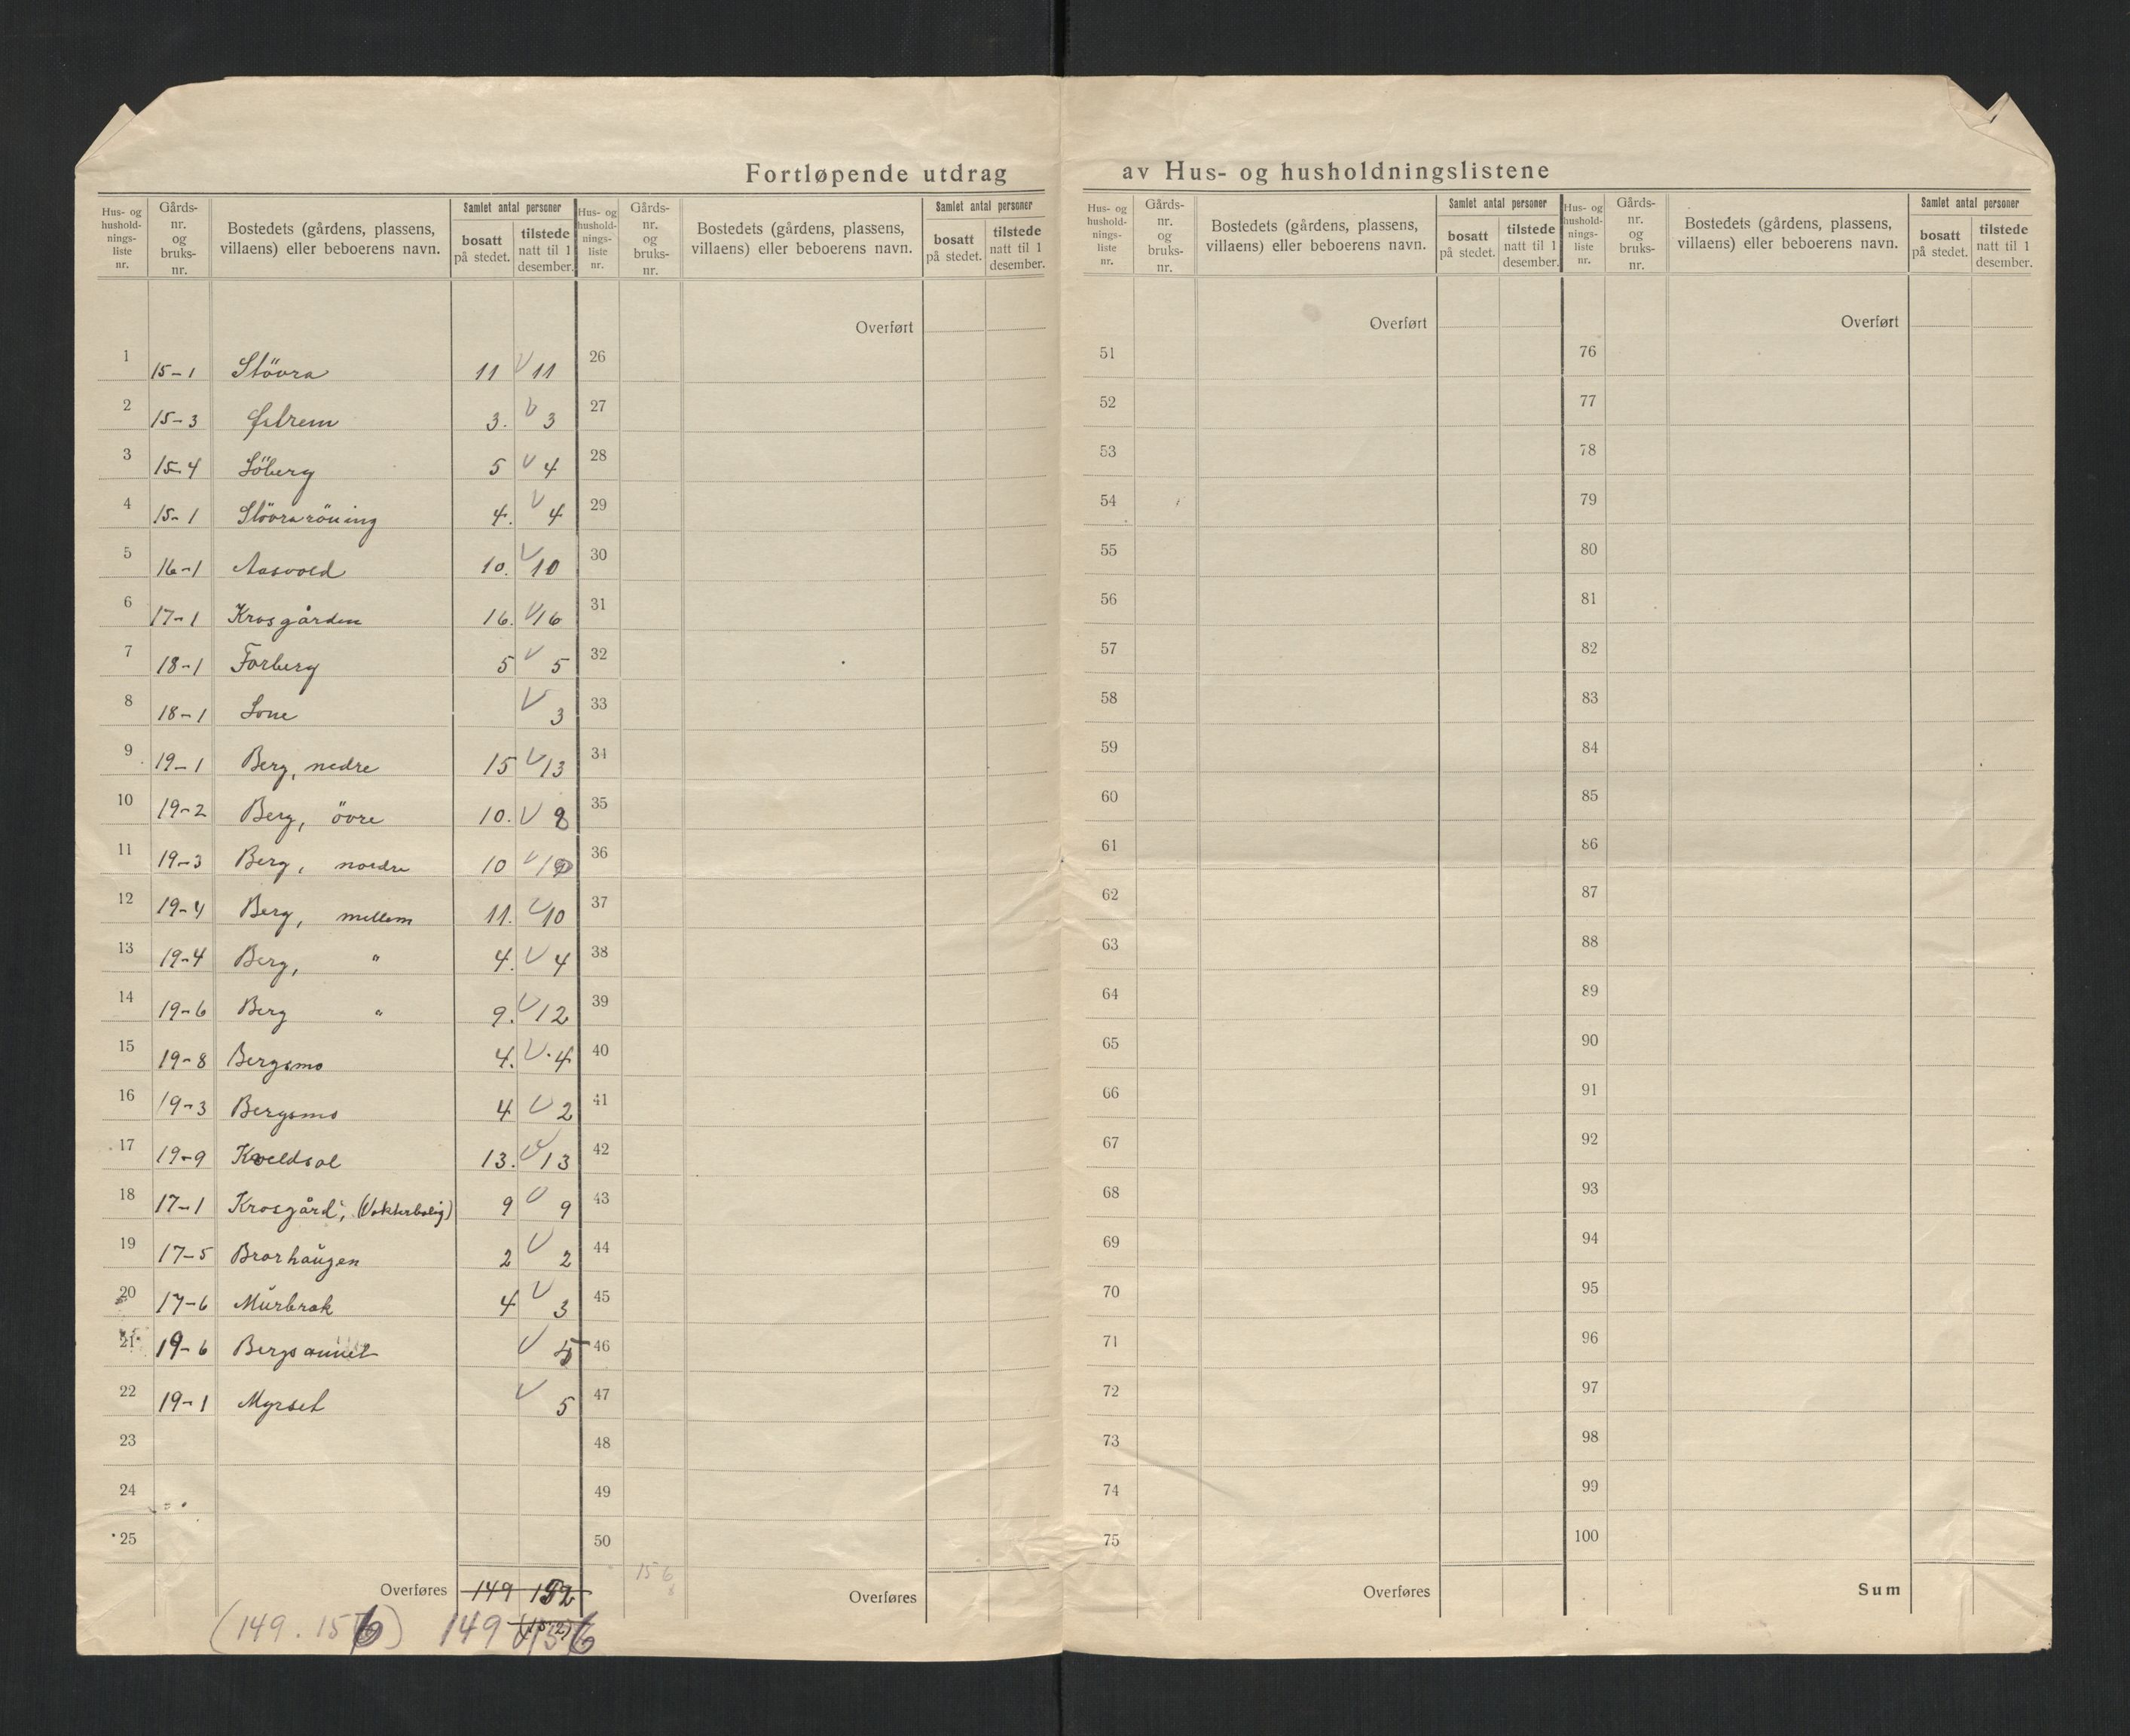 Fortløpende utdrag av Hus- og husholdningslistene
Hus- og hushold- nings- liste nr. Gårds- nr. og bruks- nr. Bostedets (gårdens, plassens, villaens) eller beboerens navn. Samlet antal personer bosatt på stedet. tilstede natt til 1 desember.
Hus- og hushold- nings- liste nr. Gårds- nr. og bruks- nr. Bostedets (gårdens, plassens, villaens) eller beboerens navn. Samlet antal personer bosatt på stedet. tilstede natt til 1 desember.
Hus- og hushold- nings- liste nr. Gårds- nr. og bruks- nr. Bostedets (gårdens, plassens, villaens) eller beboerens navn. Samlet antal personer bosatt på stedet. tilstede natt til 1 desember.
Hus- og hushold- nings- liste nr. Gårds- nr. og bruks- nr. Bostedets (gårdens, plassens, villaens) eller beboerens navn. Samlet antal personer bosatt på stedet. tilstede natt til 1 desember.
Overført Overført Overført
1 15-1 Stövra 11 V 11 26 51 76
2 15-3 Østrem 3. V 3 27 52 77
3 15-4 Söberg 5 V 4 28 53 78
4 15-1 Stövraröning 4. V 4 29 54 79
5 16-1 Aasvold 10. V 10 30 55 80
6 17-1 Krosgården 16. V 16 31 56 81
7 18-1 Forberg 5 V 5 32 57 82
8 18-1 Lone V 3 33 58 83
9 19-1 Berg, nedre 15 V 13 34 59 84
10 19-2 Berg, övre 10. V 8 35 60 85
11 19-3 Berg, nordre 10 V 10 36 61 86
12 19-4 Berg, mellem 11. V 10 37 62 87
13 19-4 Berg, " 4. V 4 38 63 88
14 19-6 Berg " 9. V 12 39 64 89
15 19-8 Bergsmo 4. V. 4 40 65 90
16 19-3 Bergsmo 4 V 2 41 66 91
17 19-9 Kveldsol 13. V 13 42 67 92
18 17-1 Krosgård, (Vokterbolig) 9 V 9 43 68 93
19 17-5 Brorhaŭgen 2 V 2 44 69 94
20 17-6 Mŭrbrak 4 V 3 45 70 95
21 19-6 V 5 46 71 96
22 19-1 Myrset V 5 47 72 97
23 48 73 98
24 49 74 99
25 50 75 100
156
Overføres 149 152 Overføres Overføres Sum
(149. 156) 149 V 156